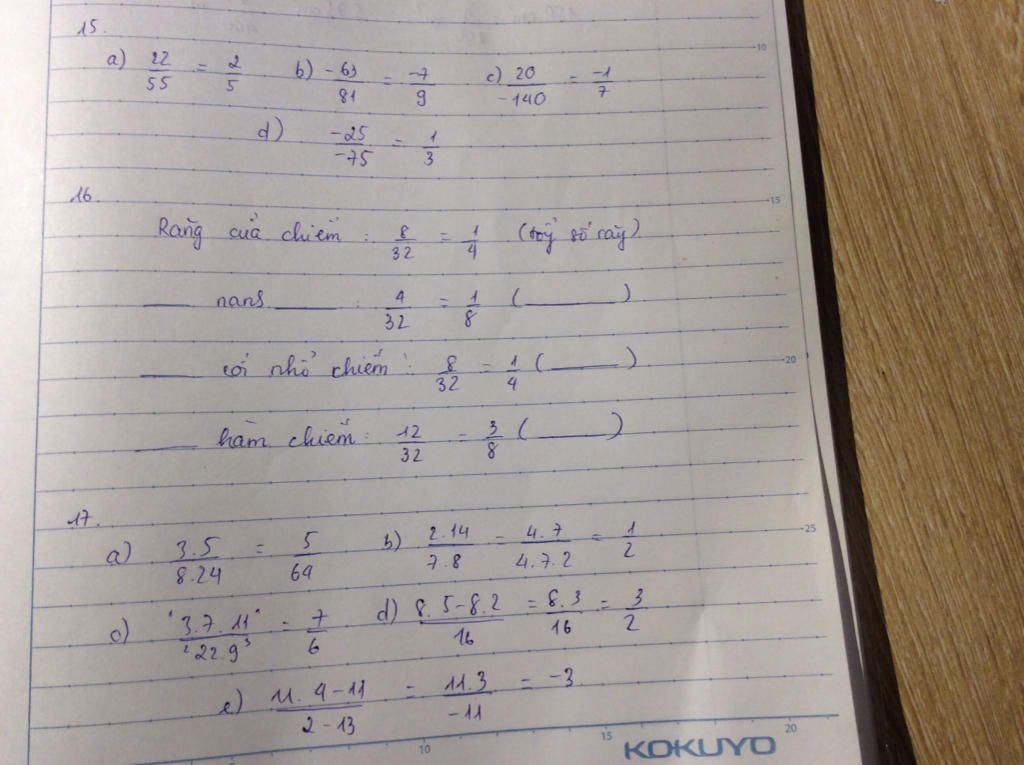 15.
a) 22/55 = 2/5 b) -63/81 = -7/9 c) 20/-140 = -1/7
d) -25/-75 = 1/3
16.
Răng cửa chiếm : 8/32 = 1/4 ( số răng)
___ nanh ___ : 4/32 = 1/8 (___)
___ cối nhỏ chiếm : 8/32 = 1/4 (___)
___ hàm chiếm : 12/32 = 3/8 (___)
17.
a) 3.5/8.24 = 5/64 b) 2.14/7.8 = 4.7/4.7.2 = 1/2
c) 3.7.11/22.9 = 7/6 d) 8.5-8.2/16 = 8.3/16 = 3/2
e) 11.4-11/2-13 = 11.3/-11 = -3
10
15
20
25
10 15 20
KOKUYO